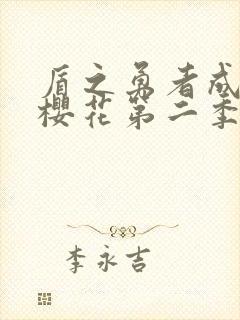 盾之勇者成
樱花第二季
李永吉